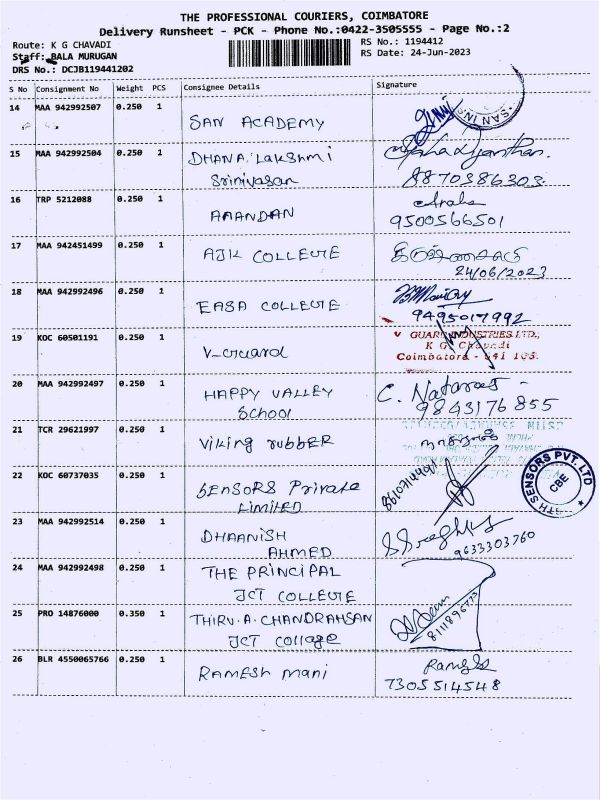 THE PROFESSIONAL COURIERS, COIMBATORE
Delivery Runsheet - PCK - Phone No.:0422-3505555 - Page No.:2
Route: K G CHAVADI
RS No.: 1194412
Staff: BALA MURUGAN
RS Date: 24-Jun-2023
DRS No.: DCJB119441202
S No Consignment No Weight PCS Consignee Details Signature
14 MAA 942992507 0.250 1 SAN ACADEMY
15 MAA 942992504 0.250 1 DHANA LAKSHMI
Srinivasan 8870386303
16 TRP 5212088 0.250 1 AAANDAN
9500566501
17 MAA 942451499 0.250 1 AJK COLLEGE
24/06/2023
18 MAA 942992496 0.250 1 EASA COLLEGE
9495017992
19 KOC 60501191 0.250 1 V-Guard
V GUARD INDUSTRIES LTD.,
K G Chavadi
Coimbatore - 641 105.
20 MAA 942992497 0.250 1 HAPPY VALLEY C. Nataraj
School 9843176855
21 TCR 29621997 0.250 1 Viking rubber
22 KOC 60737035 0.250 1 SENSORS Private
LIMITED
SENSORS PVT. LTD
CBE
23 MAA 942992514 0.250 1 DHAANISH
AHMED 9633303760
24 MAA 942992498 0.250 1 THE PRINCIPAL
JCT COLLEGE
25 PRO 14876000 0.350 1 THIRU.A.CHANDRAHSAN
JCT Collage
26 BLR 4550065766 0.250 1 RAMESH mani
7305514548